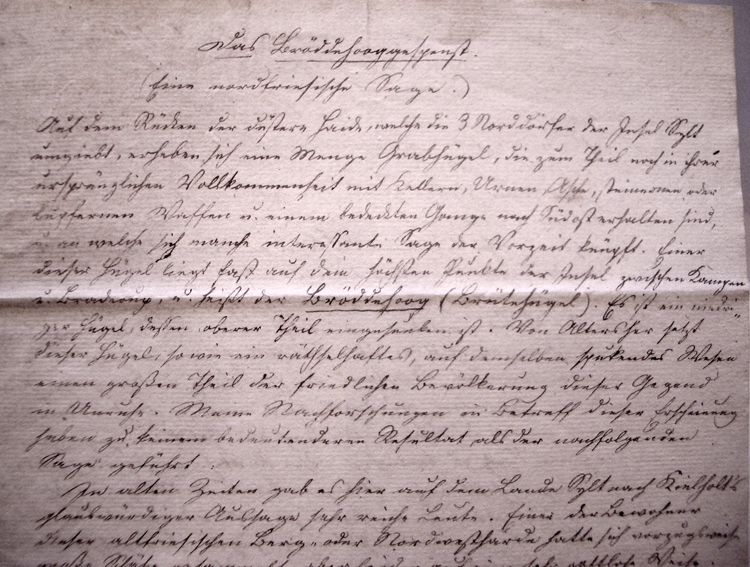 Das Bröddehooggespenst.
(Eine nordfriesische Sage.)
Auf dem Rücken der düstern Haide, welche die 3 Norddörfer der Insel Sylt
umgiebt, erheben sich eine Menge Grabhügel, die zum Theil noch in ihrer
ursprünglichen Vollkommenheit mit Kellern, Urnen, Asche, steinernen oder
kupfernen Waffen u. einem bedeckten Gange nach Südost erhalten sind,
u. an welche sich manche interessante Sage der Vorzeit knüpft. Einer
dieser Hügel liegt fast auf dem höchsten Punkte der Insel zwischen Kampen
u. Braderup, u. heißt der Bröddehoog (Brütehügel). Es ist ein niedri-
ger Hügel, dessen oberer Theil eingesunken ist. Von Altersher setzt
dieser Hügel, so wie ein räthselhaftes, auf demselben spukendes Wesen
einen großen Theil der friedlichen Bevölkerung dieser Gegend
in Unruhe. Meine Nachforschungen in Betreff dieser Erscheinung
haben zu keinem bedeutenderen Resultat als der nachfolgenden
Sage geführt:
In alten Zeiten gab es hier auf dem Lande Sylt nach Kielholt's
glaubwürdiger Aussage sehr reiche Leute. Einer der Bewohner
dieser altfriesischen Berg- oder Nordwestharde hatte sich vorzugsweise
große Schätze gesammelt, aber leider auf eine sehr gottlose Weise.